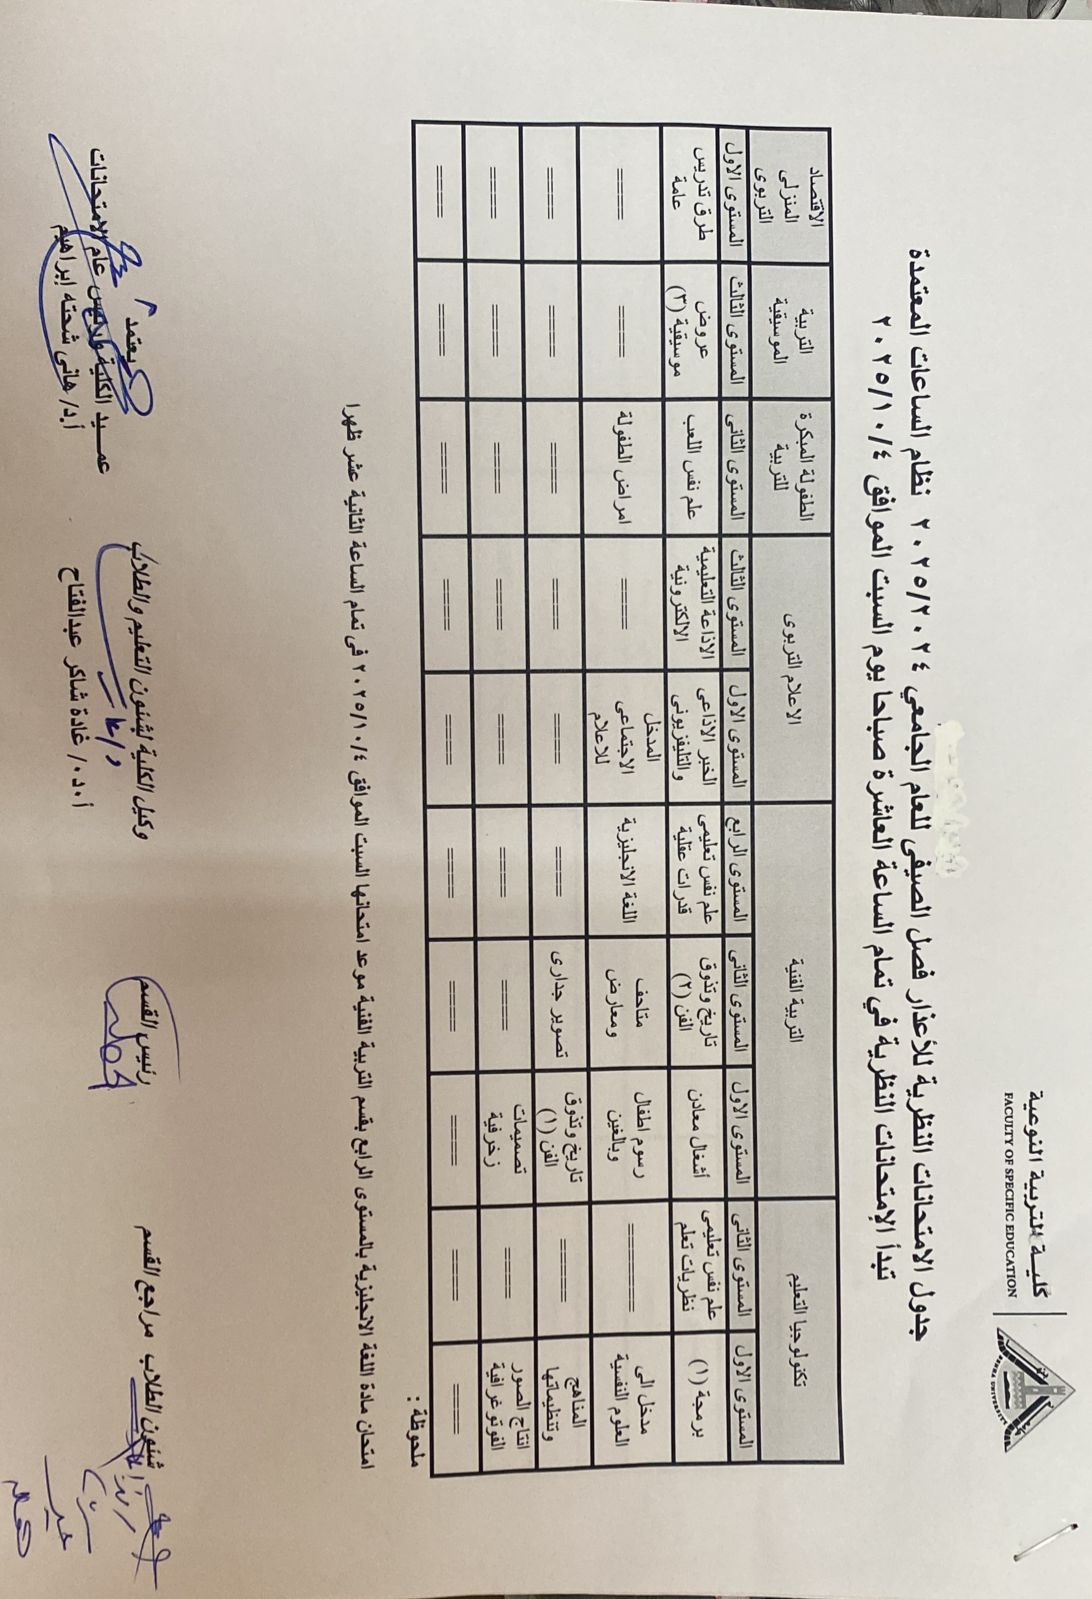 كلية التربية النوعية
FACULTY OF SPECIFIC EDUCATION
جدول الامتحانات النظرية للأعذار فصل الصيفى للعام الجامعي ٢٠٢٥/٢٠٢٤ نظام الساعات المعتمدة
تبدأ الإمتحانات النظرية في تمام الساعة العاشرة صباحا يوم السبت الموافق ٢٠٢٥/١٠/٤
تكنولوجيا التعليم التربية الفنية الاعلام التربوى الطفولة المبكرة للتربية التربية الموسيقية الاقتصاد المنزلى التربوى
المستوى الاول المستوى الثانى المستوى الاول المستوى الثانى المستوى الرابع المستوى الاول المستوى الثالث المستوى الثانى المستوى الثالث المستوى الاول
برمجة (١) علم نفس تعليمى نظريات تعلم أشغال معادن تاريخ وتذوق الفن (٢) علم نفس تعليمى قدرات عقلية الخبر الاذاعى والتليفزيونى الاذاعة التعليمية الالكترونية علم نفس اللعب عروض موسيقية (٣) طرق تدريس عامة
مدخل الى العلوم النفسية ===== رسوم اطفال وبالغين متاحف ومعارض اللغة الانجليزية المدخل الاجتماعى للاعلام ==== امراض الطفولة ==== ====
المناهج وتنظيماتها ==== تاريخ وتذوق الفن (١) تصوير جدارى ==== ==== ==== ==== ==== ====
انتاج الصور الفوتوغرافية ==== تصميمات زخرفية ==== ==== ==== ==== ==== ==== ====
==== ==== ==== ==== ==== ==== ==== ==== ==== ====
ملحوظة :
امتحان مادة اللغة الانجليزية بالمستوى الرابع بقسم التربية الفنية موعد امتحانها السبت الموافق ٢٠٢٥/١٠/٤ فى تمام الساعة الثانية عشر ظهرا
شئون الطلاب مراجع القسم رئيس القسم وكيل الكلية لشئون التعليم والطلاب يعتمد
عمـــيد الكلية ورئيس عام الامتحانات
أ.د./ غادة شاكر عبدالفتاح أ.د/ هانى شحته إبراهيم